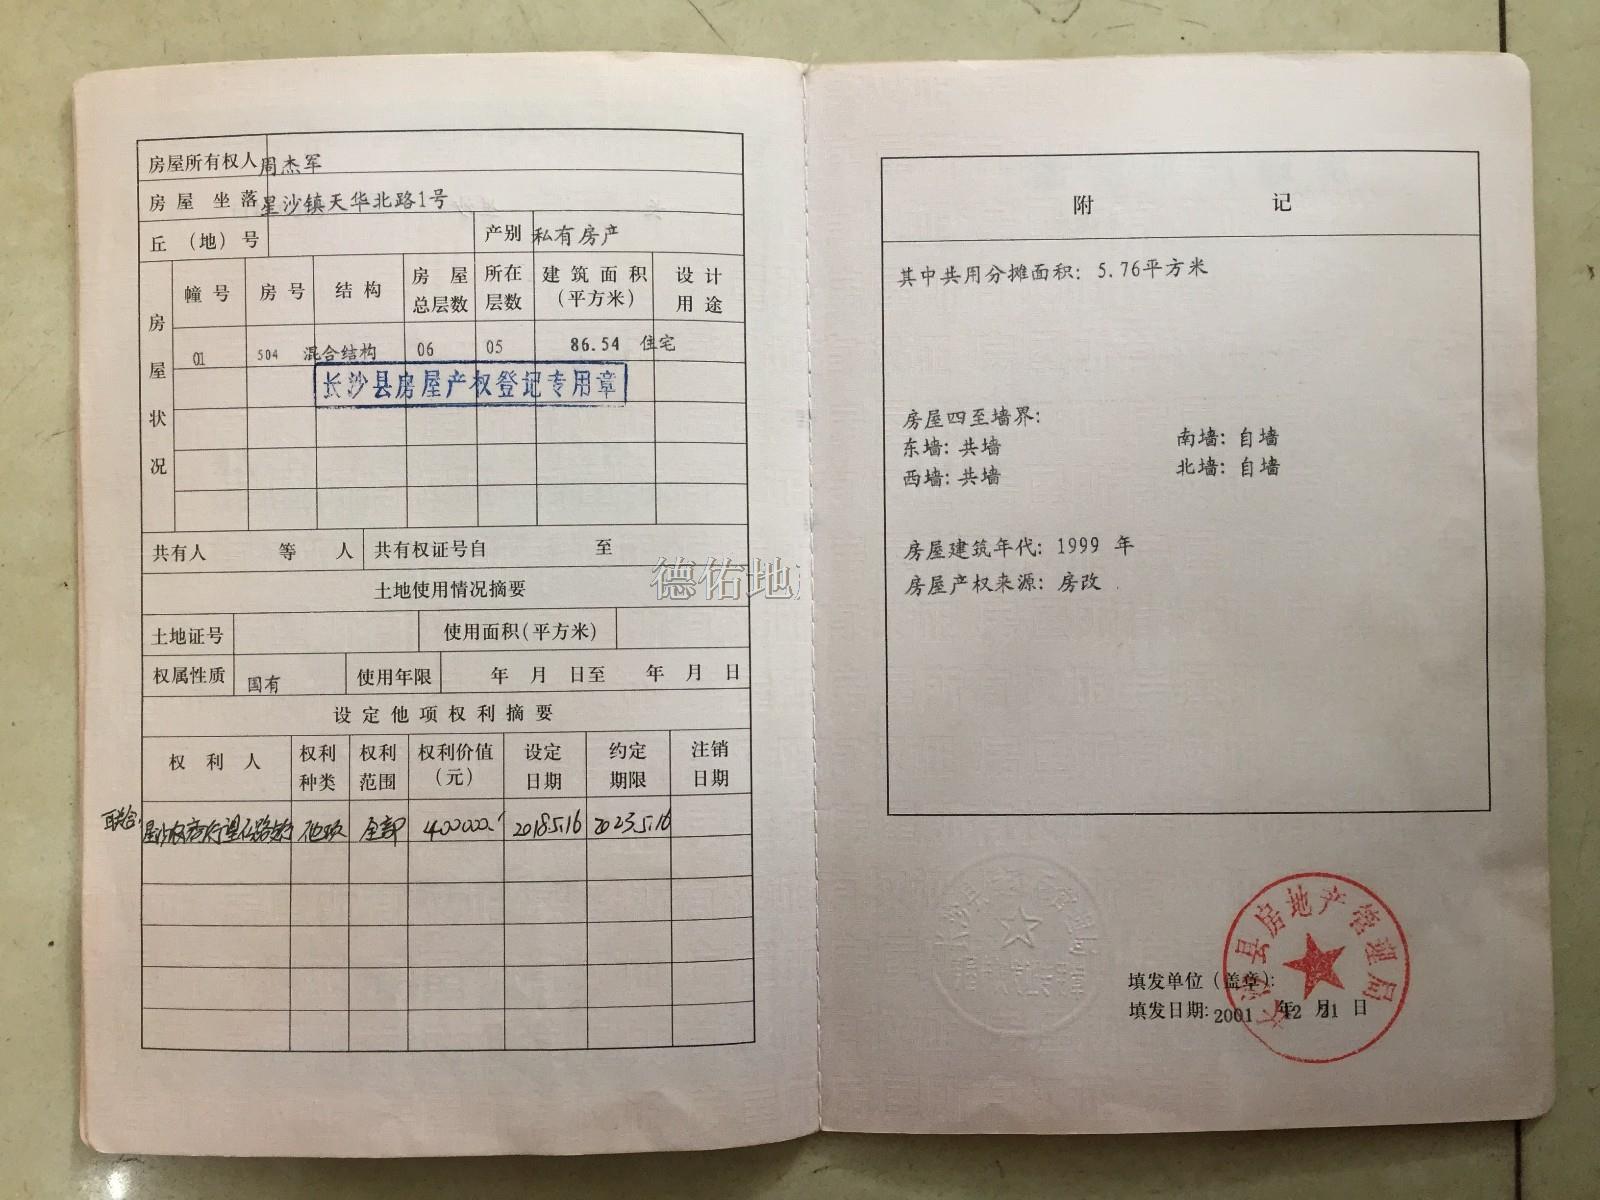 房屋所有权人 周杰军
房屋坐落 星沙镇天华北路1号
丘（地）号 产别 私有房产
房屋状况
幢号 房号 结构 房屋总层数 所在层数 建筑面积（平方米） 设计用途
01 504 混合结构 06 05 86.54 住宅
长沙县房屋产权登记专用章
共有人 等 人 共有权证号自 至
土地使用情况摘要
土地证号 使用面积（平方米）
权属性质 国有 使用年限 年 月 日至 年 月 日
设定他项权利摘要
权利人 权利种类 权利范围 权利价值（元） 设定日期 约定期限 注销日期
联合
星沙农商行望仙路支行 他项 全部 400000. 2018.5.16 2023.5.16
德佑地
附 记
其中共用分摊面积：5.76平方米
房屋四至墙界：
东墙：共墙 南墙：自墙
西墙：共墙 北墙：自墙
房屋建筑年代：1999 年
房屋产权来源：房改
长沙县房地产管理局
填发单位（盖章）：
填发日期：2001 年 12 月 21 日